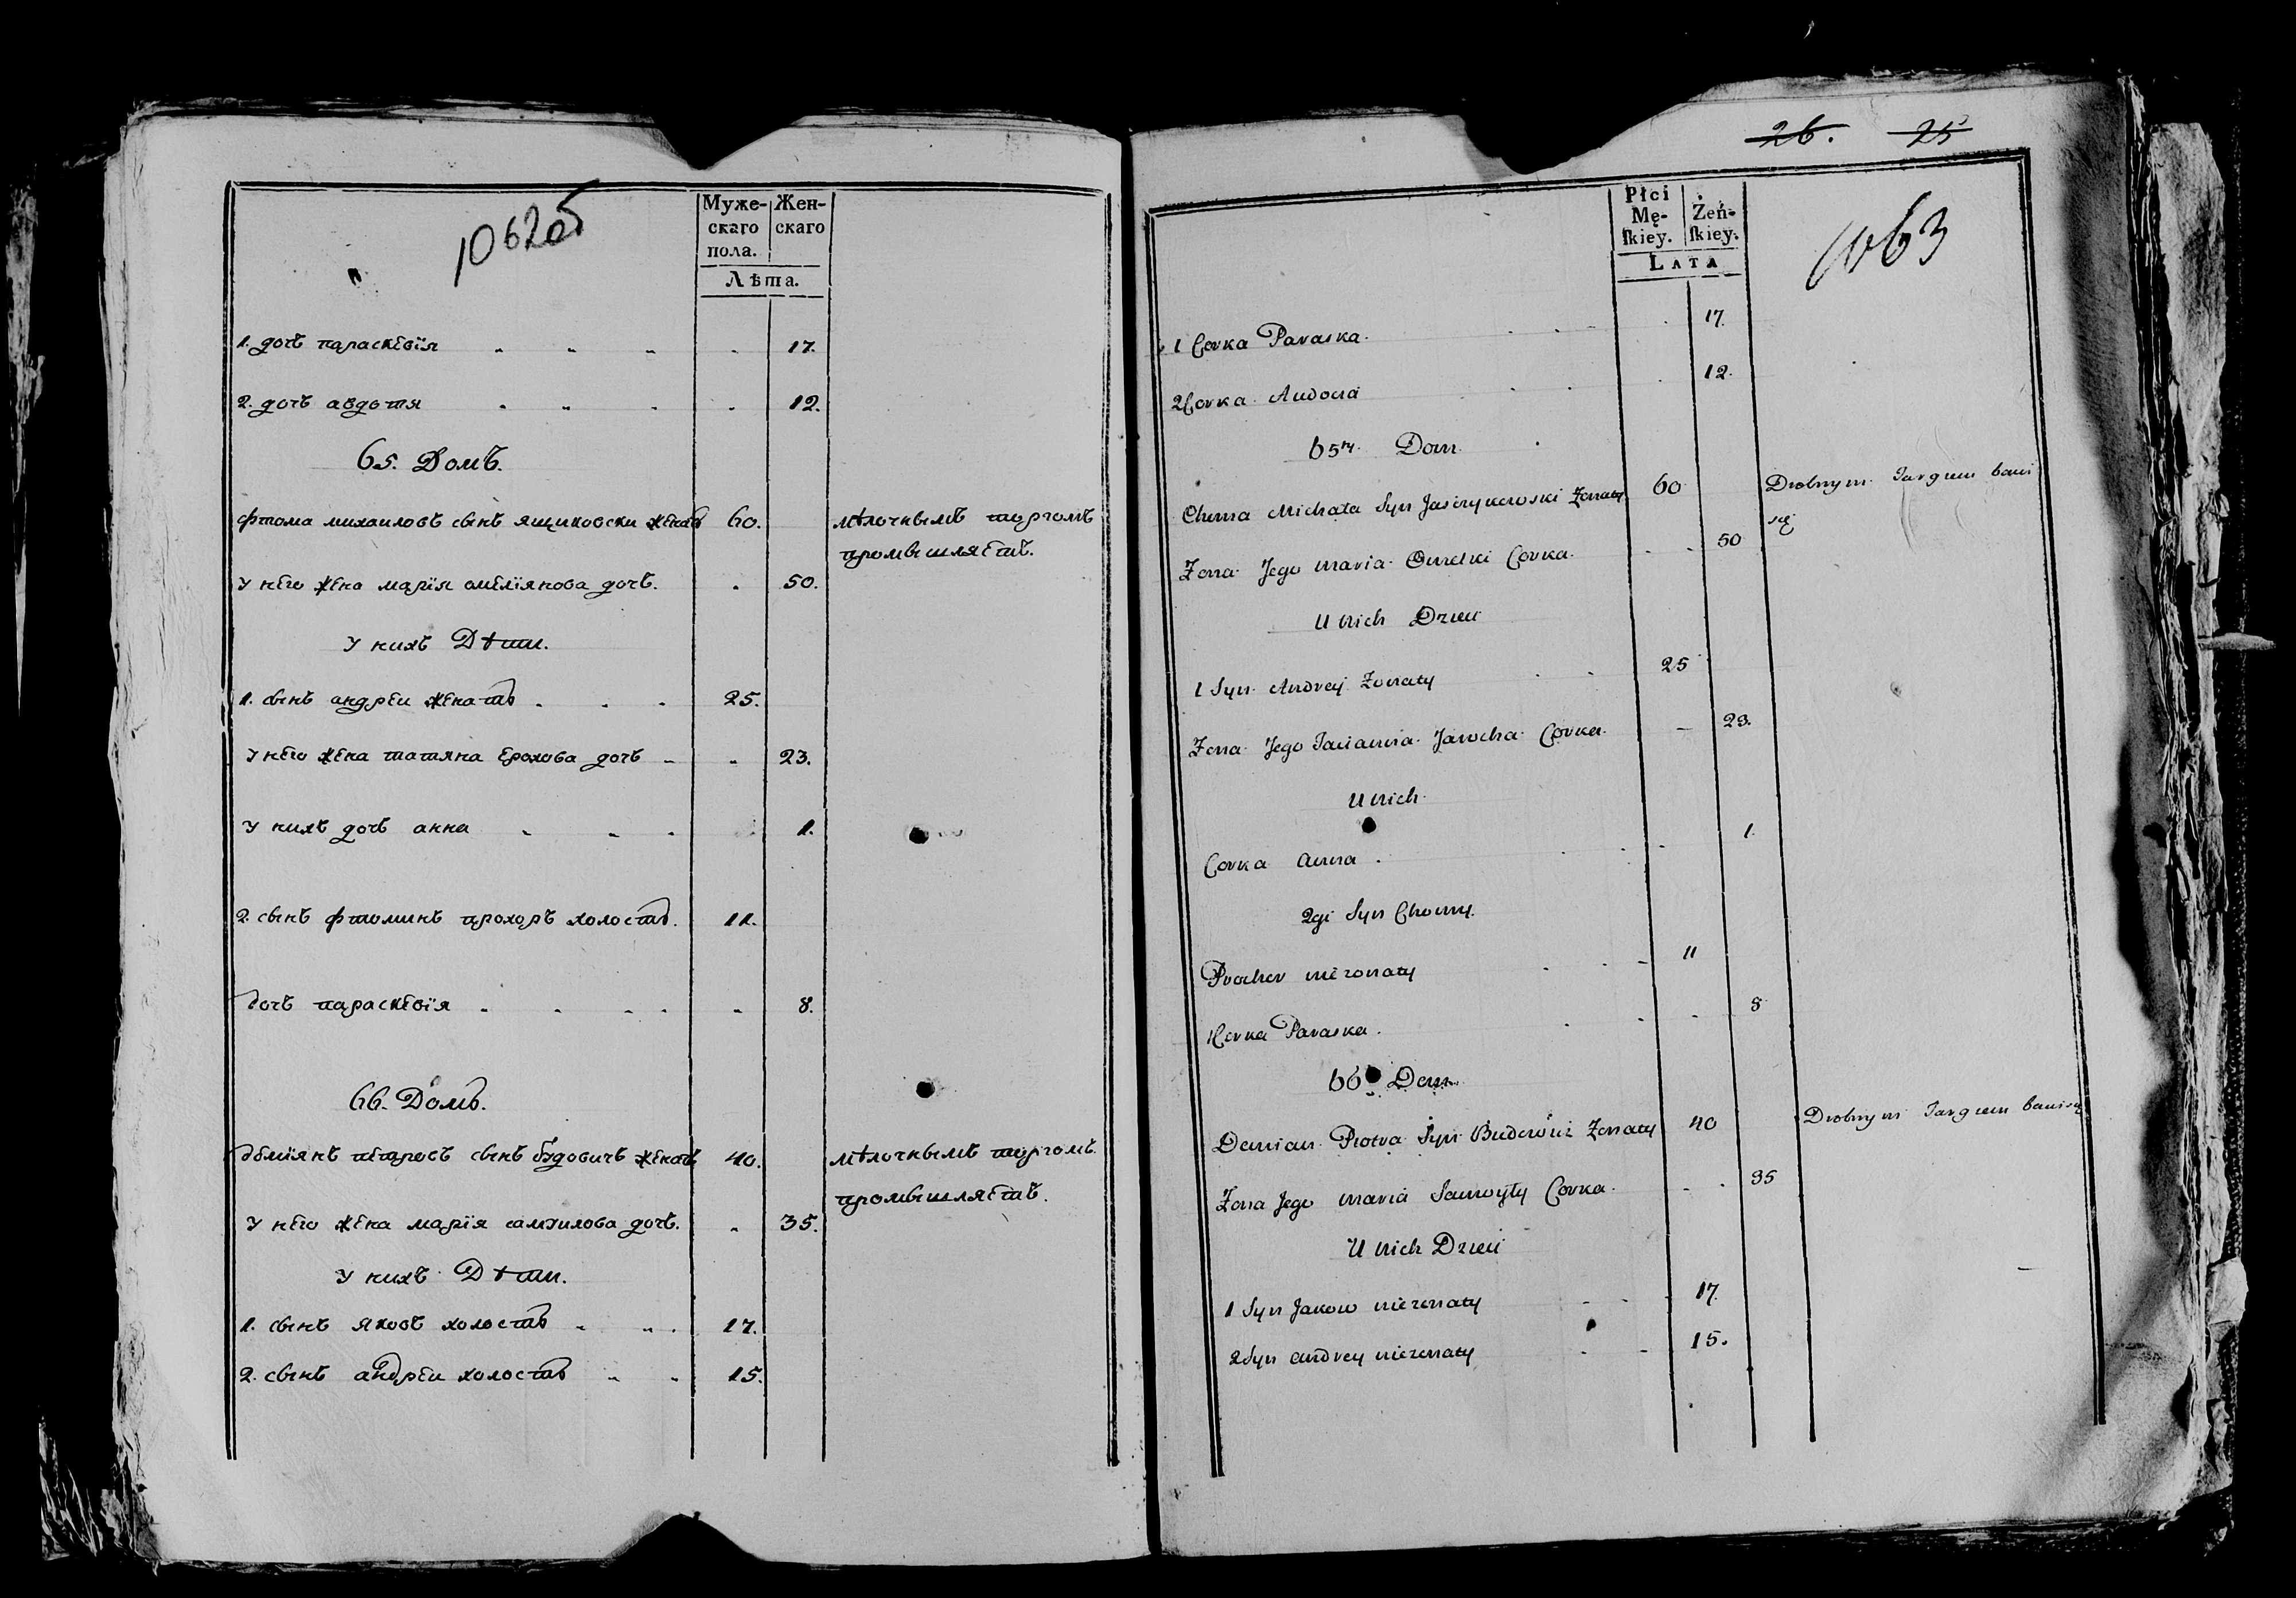 1062об
Муже-скаго пола. Жен-скаго
Лѣта.
1. дочь параскевїя 17.
2. дочь авдотя 12.
65. Домъ.
фтома михаиловъ сынъ ящиковски женатъ 60. мѣлочнымъ торгомъ
промышляетъ.
у него жена марїя омелїянова дочь. 50.
у нихъ Дѣти.
1. сынъ андреи женатъ 25.
у него жена татяна ерохова дочь 23.
у нихъ дочь анна 1.
2. сынъ фтоминъ прохоръ холостъ. 11.
Дочь параскевїя 8.
66. Домъ.
Демїянъ петровъ сынъ будовичъ женатъ 40. мѣлочнымъ торгомъ
промышляетъ.
у него жена марїя самуилова дочь. 35.
у нихъ Дѣти.
1. сынъ яковъ холостъ 17.
2. сынъ андреи холостъ 15.
26. 25
1063
Płci Mę-ſkiey. Żeń-ſkiey.
LATA
1 Corka Paraska. 17.
2 Corka Audocia 12.
65ty Dom
Choma Michała Syn Jasczykowski Zonaty 60 Drobnym Targem bawi
się
Zona Jego Maria Omelki Corka. 50
U nich Dzieci
1 Syn Andrej Zonaty 25
Zona Jego Tacianna Jarocha Corka. 23.
U nich
Corka Anna 1.
2gi Syn Chomy.
Prochor niezonaty 11
1 Corka Paraska. 8
66 Dom
Demian Piotra Syn Budowicz Zonaty 40 Drobnym Targiem bawi się
Zona Jego Maria Samoyły Corka. 35
U nich Dzieci
1 Syn Jakow niezonaty 17.
2 Syn Andrey niezonaty 15.